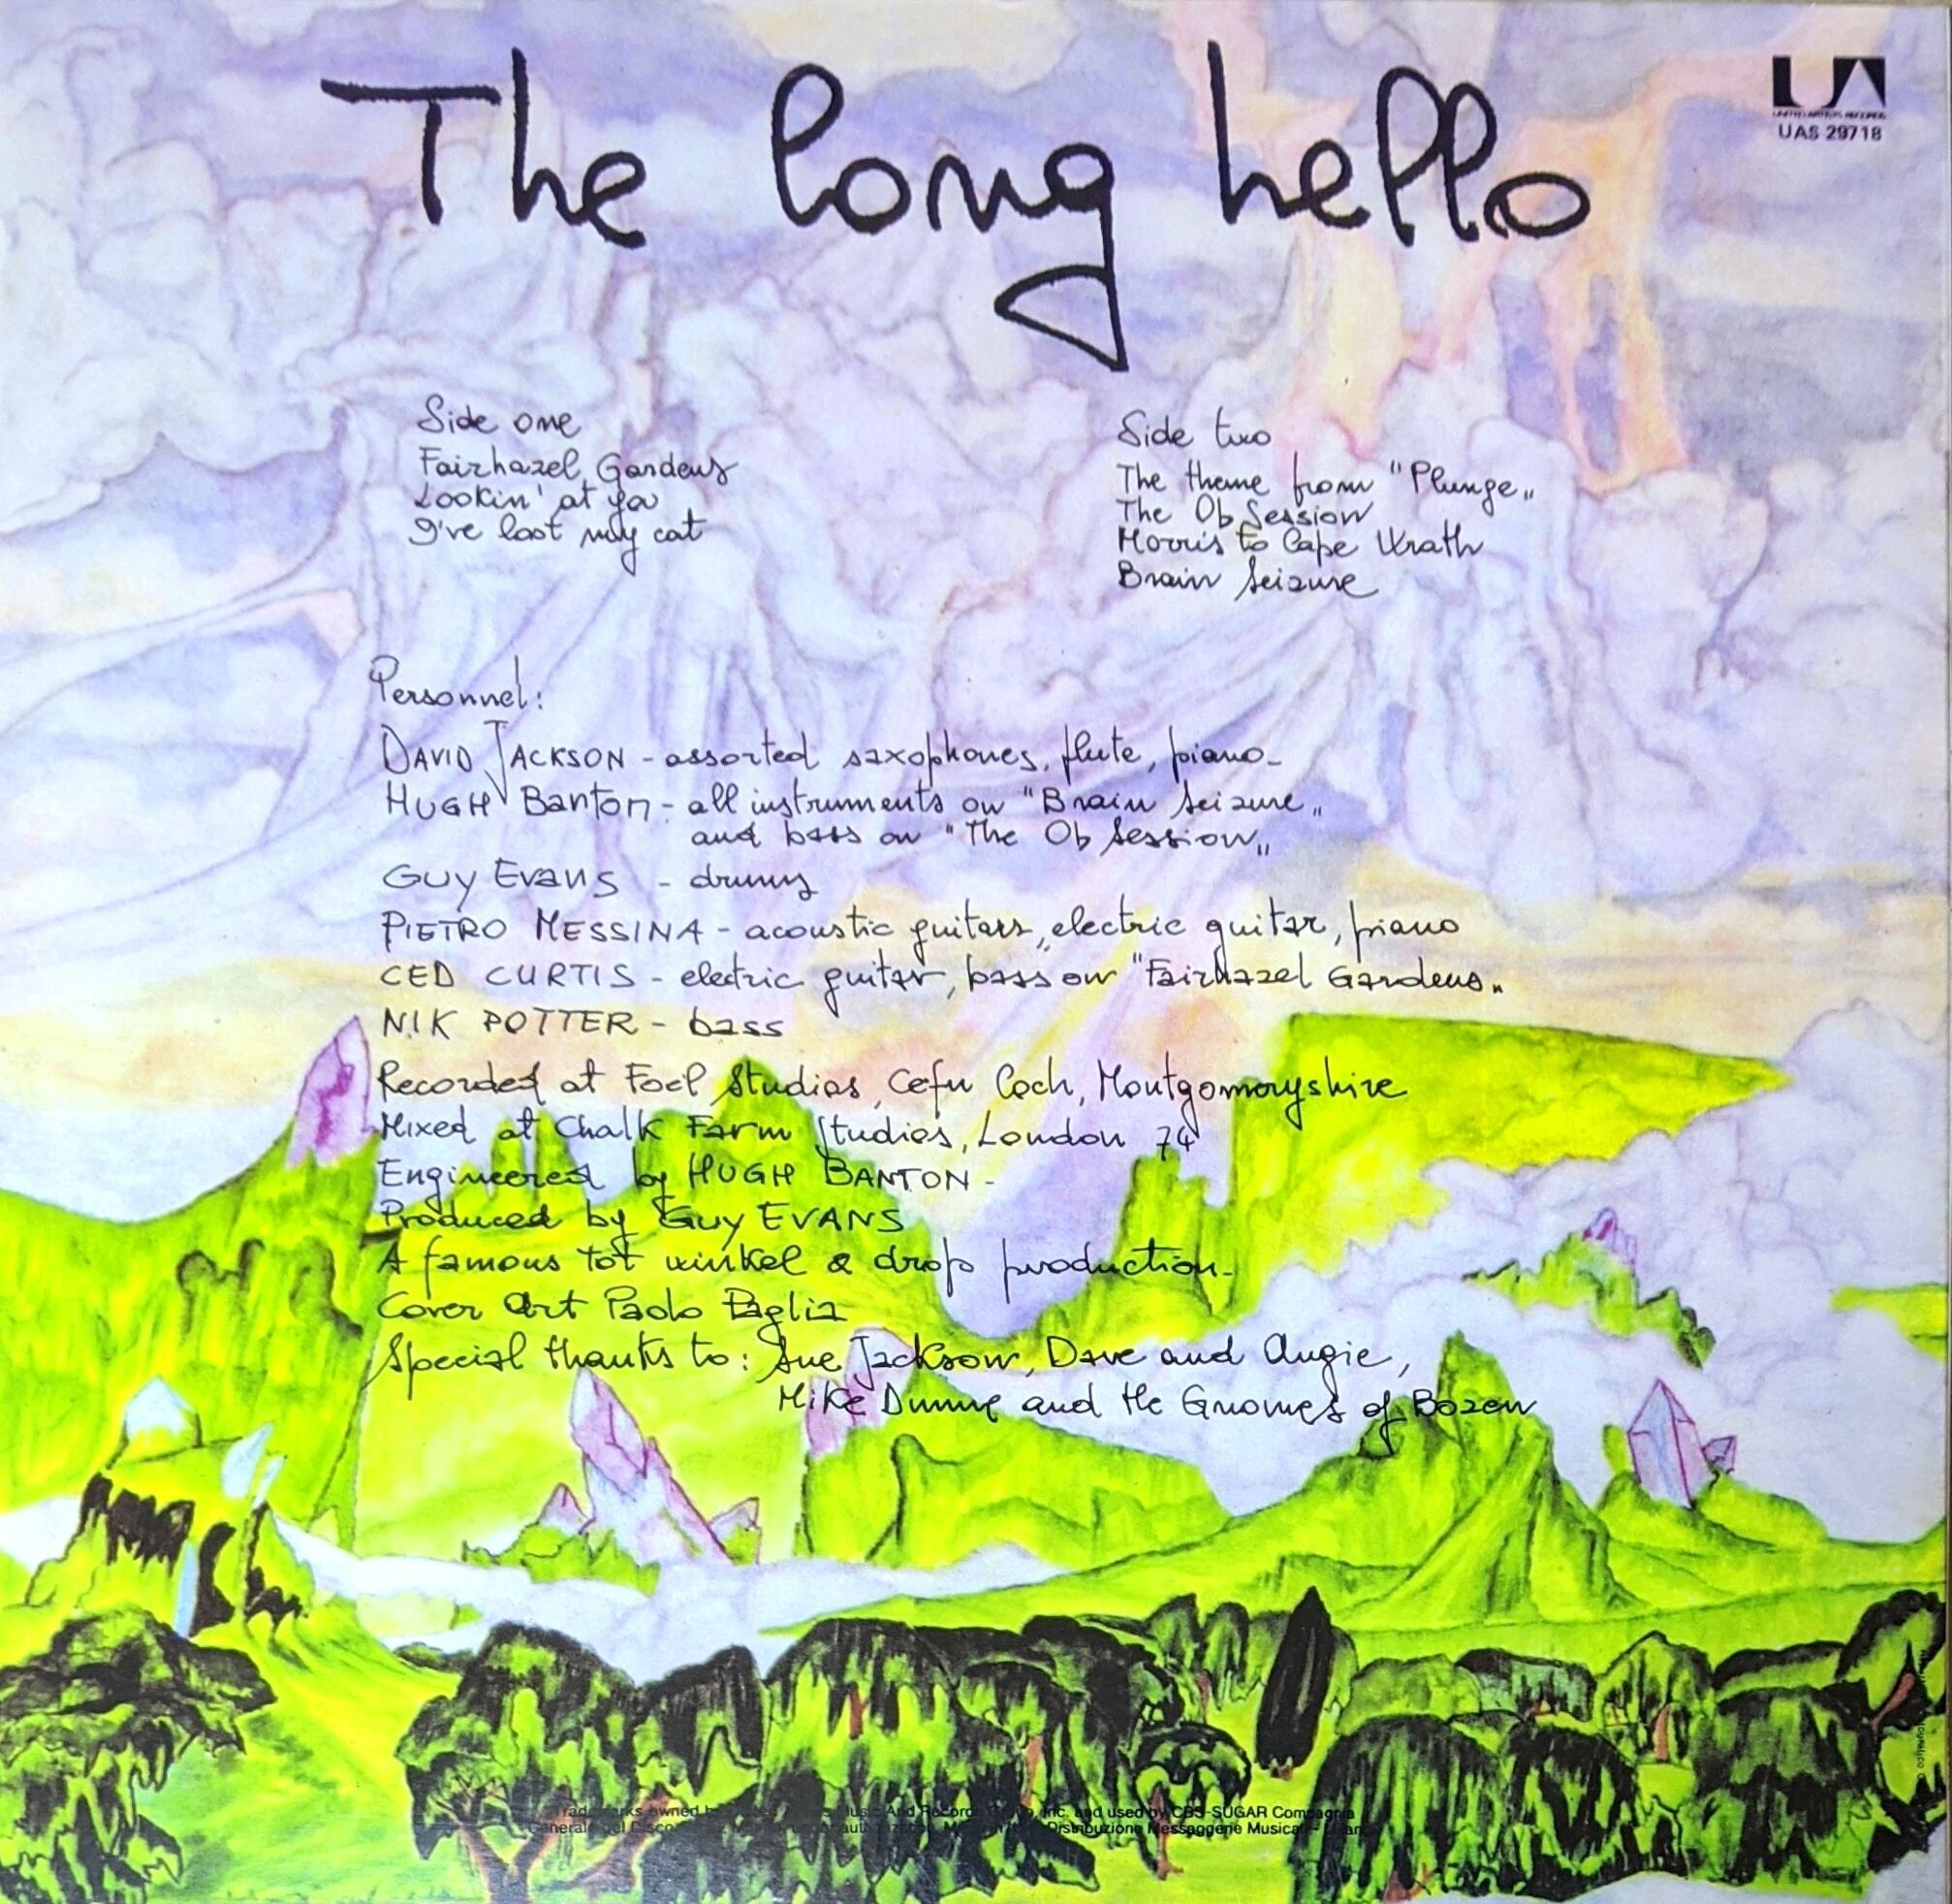 The long hello
UNITED ARTISTS RECORDS
UAS 29718
Side one
Fairhazel Gardens
Lookin' at you
I've lost my cat
Side two
The theme from "Plunge"
The Ob Session
Morris to Cape Wrath
Brain Seizure
Personnel:
DAVID JACKSON - assorted saxophones, flute, piano-
HUGH Banton - all instruments on "Brain Seizure"
and bass on "The Ob Session"
GUY EVANS - drums
PIETRO MESSINA - acoustic guitars, electric guitar, piano
CED CURTIS - electric guitar, bass on "Fairhazel Gardens"
NIK POTTER - bass
Recorded at Foel Studios, Cefn Coch, Montgomeryshire
Mixed at Chalk Farm Studios, London 74
Engineered by HUGH BANTON -
Produced by GUY EVANS
A famous tot winkel & drop production-
Cover Art Paolo Paglia
Special thanks to: Sue Jackson, Dave and Augie,
Mike Dunne and the Gnomes of Bozen
Trademarks owned by Music And Record Inc. and used by CBS-SUGAR Compagnia
Generale del Disco Distribuzione Messaggerie Musicali